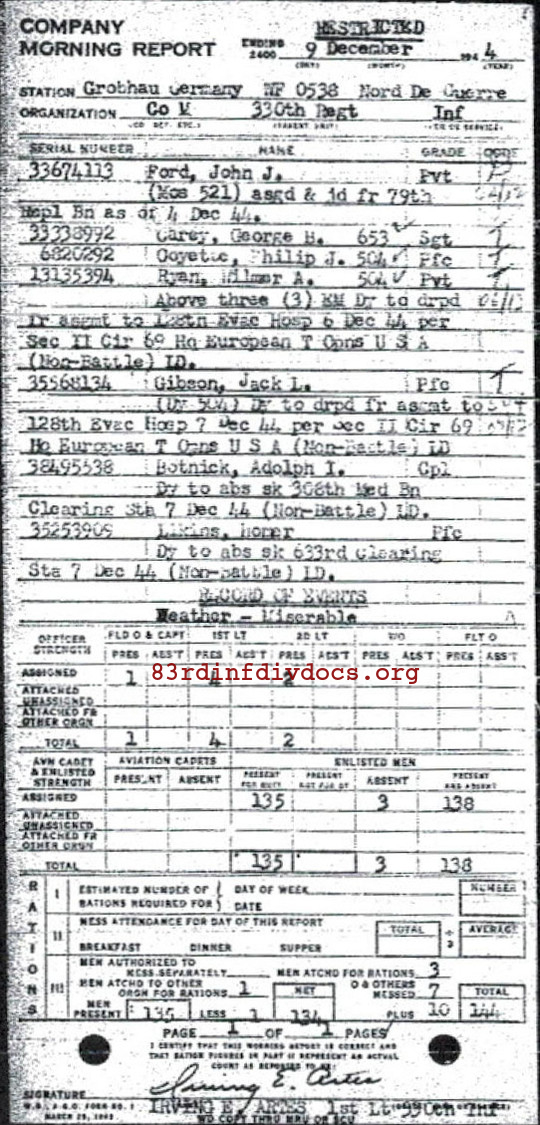 COMPANY RESTRICTED
MORNING REPORT ENDING 2400 9 December 1944
(DAY) (MONTH) (YEAR)
STATION Grobhau Germany NF 0538 Nord De Guerre
ORGANIZATION Co M 330th Regt Inf
SERIAL NUMBER NAME GRADE CODE
33674113 Ford, John J. Pvt
(Mos 521) asgd & jd fr 79th
Repl Bn as of 4 Dec 44.
33338992 Carey, George H. 653 Sgt T
6820292 Goyette, Philip J. 504 Pfc T
13135394 Ryan, Wilmer A. 504 Pvt T
Above three (3) EM Dy to drpd
fr asgmt to 128th Evac Hosp 6 Dec 44 per
Sec II Cir 69 Hq European T Opns U S A
(Non-Battle) LD.
35568134 Gibson, Jack L. Pfc T
(Dy 504) Dy to drpd fr asgmt to
128th Evac Hosp 7 Dec 44 per Sec II Cir 69
Hq European T Opns U S A (Non-Battle) LD
38495538 Botnick, Adolph I. Cpl
Dy to abs sk 308th Med Bn
Clearing Sta 7 Dec 44 (Non-Battle) LD.
35253909 Likins, Homer Pfc
Dy to abs sk 633rd Clearing
Sta 7 Dec 44 (Non-Battle) LD.
RECORD OF EVENTS
Weather - Miserable
OFFICER STRENGTH FLD O & CAPT 1ST LT 2D LT WO FLT O
PRES ABS'T PRES ABS'T PRES ABS'T PRES ABS'T PRES ABS'T
ASSIGNED 1 4 2
83rdinfdivdocs.org
ATTACHED UNASSIGNED
ATTACHED FR OTHER ORGN
TOTAL 1 4 2
AVN CADET & ENLISTED STRENGTH AVIATION CADETS ENLISTED MEN
PRESENT ABSENT PRESENT FOR DUTY PRESENT NOT FOR DY ABSENT PRESENT AND ABSENT
ASSIGNED 135 3 138
ATTACHED UNASSIGNED
ATTACHED FR OTHER ORGN
TOTAL 135 3 138
RATIONS
I ESTIMATED NUMBER OF RATIONS REQUIRED FOR DAY OF WEEK DATE NUMBER
II MESS ATTENDANCE FOR DAY OF THIS REPORT TOTAL ÷ 3 AVERAGE
BREAKFAST DINNER SUPPER
III MEN AUTHORIZED TO MESS SEPARATELY MEN ATCHD FOR RATIONS 3
MEN ATCHD TO OTHER ORGN FOR RATIONS 1 NET O & OTHERS MESSED 7 TOTAL
MEN PRESENT 135 LESS 1 134 PLUS 10 144
PAGE 1 OF 1 PAGES
I CERTIFY THAT THIS MORNING REPORT IS CORRECT AND
THAT RATION FIGURES IN PART II REPRESENT AN ACTUAL
COUNT AS REPORTED TO ME:
Irving E. Artes
SIGNATURE IRVING E. ARTES 1st Lt 330th Inf
W.D., A.G.O. FORM NO. 1
MARCH 25, 1943 WD COPY THRU MRU OR SCU